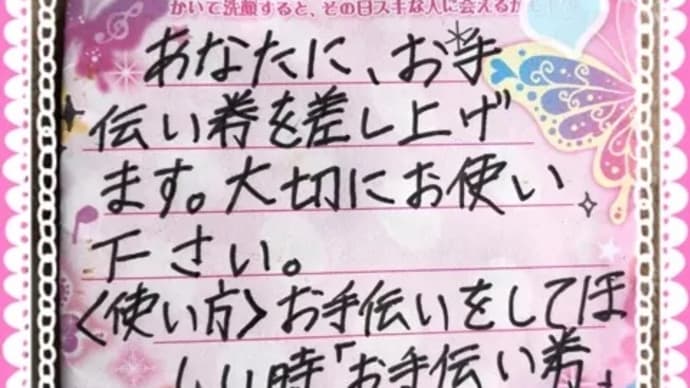 かいて洗顔すると、その日スキな人に会えるか
あなたに、お手
伝い券を差し上げ
ます。大切にお使い
下さい。
〈使い方〉お手伝いをしてほ
しい時「お手伝い券」